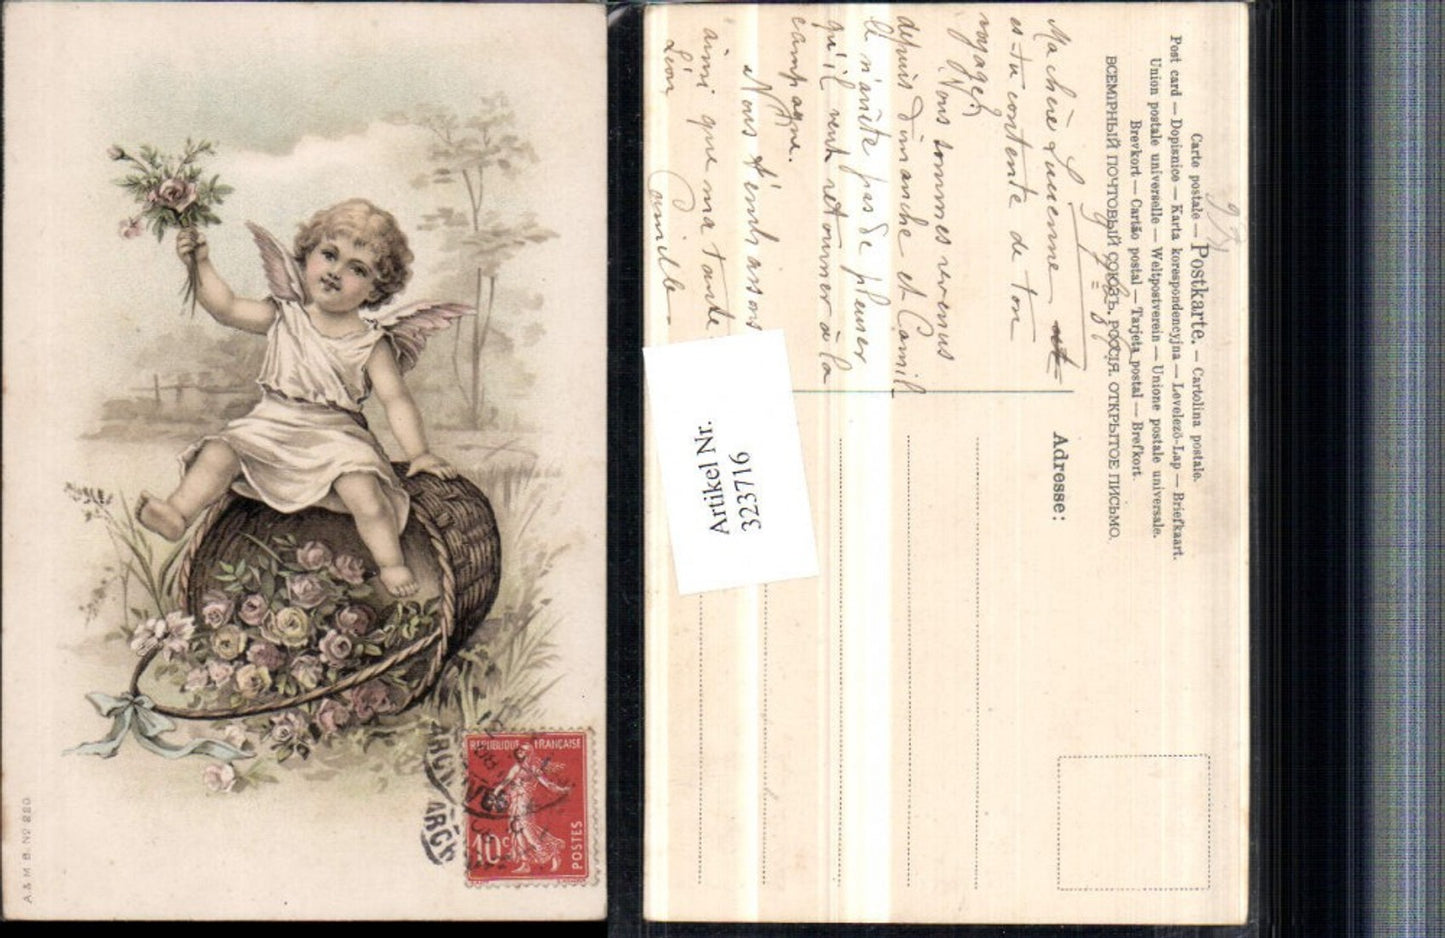 A & M B. Nº 220
RÉPUBLIQUE FRANÇAISE
10c POSTES
Carte postale — Postkarte. — Cartolina postale.
Post card — Dopisnice — Karta korespondencyjna — Levelező-Lap — Briefkaart.
Union postale universelle — Weltpostverein — Unione postale universale.
Brevkort — Cartão postal — Tarjeta postal — Brefkort.
ВСЕМІРНЫЙ ПОЧТОВЫЙ СОЮЗЪ, РОССІЯ. ОТКРЫТОЕ ПИСЬМО.
Adresse:
Ma chère
es-tu contente de ton
voyage,
Nous sommes revenus
depuis dimanche et Camil
le n'arrête pas de pleurer
qu'il veut retourner à la
campagne.
Nous t'embrassons
ainsi que ma tante
Léon Camille
Artikel Nr.
323716